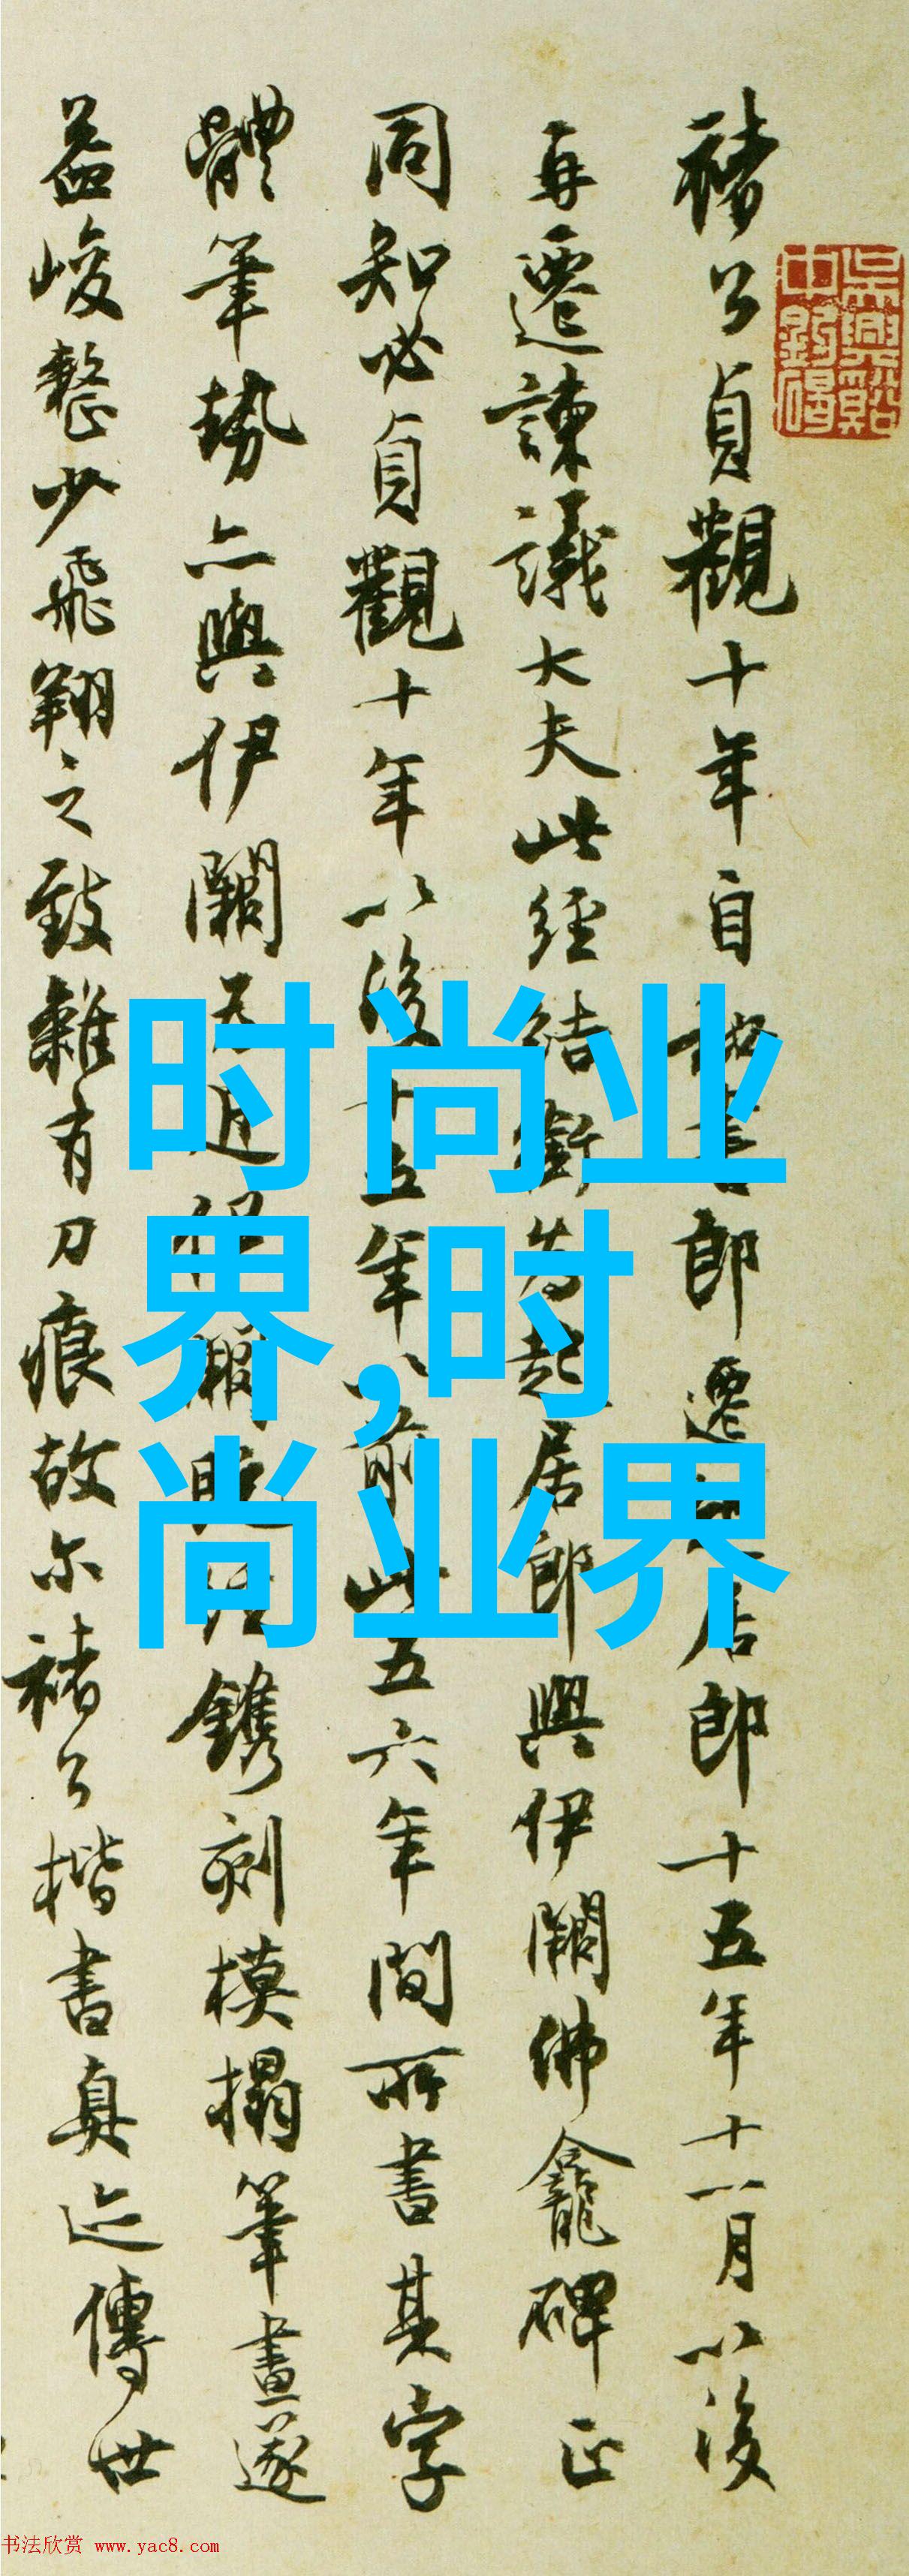 褚公貞觀十年自祕書郎遷居郎十五年十一月以後
再遷諫議大夫此經結銜為起居郎與伊闕佛龕碑正
同知必貞觀十年以後十五年以前此五六年間所書其字
體筆勢亦與伊闕近鐫刻模搨筆畫遂
益峻整少飛翔之致雜有刀痕故尔褚公楷書真迹傳世
时尚业
界,时
尚业界
书法欣赏 www.yac8.com